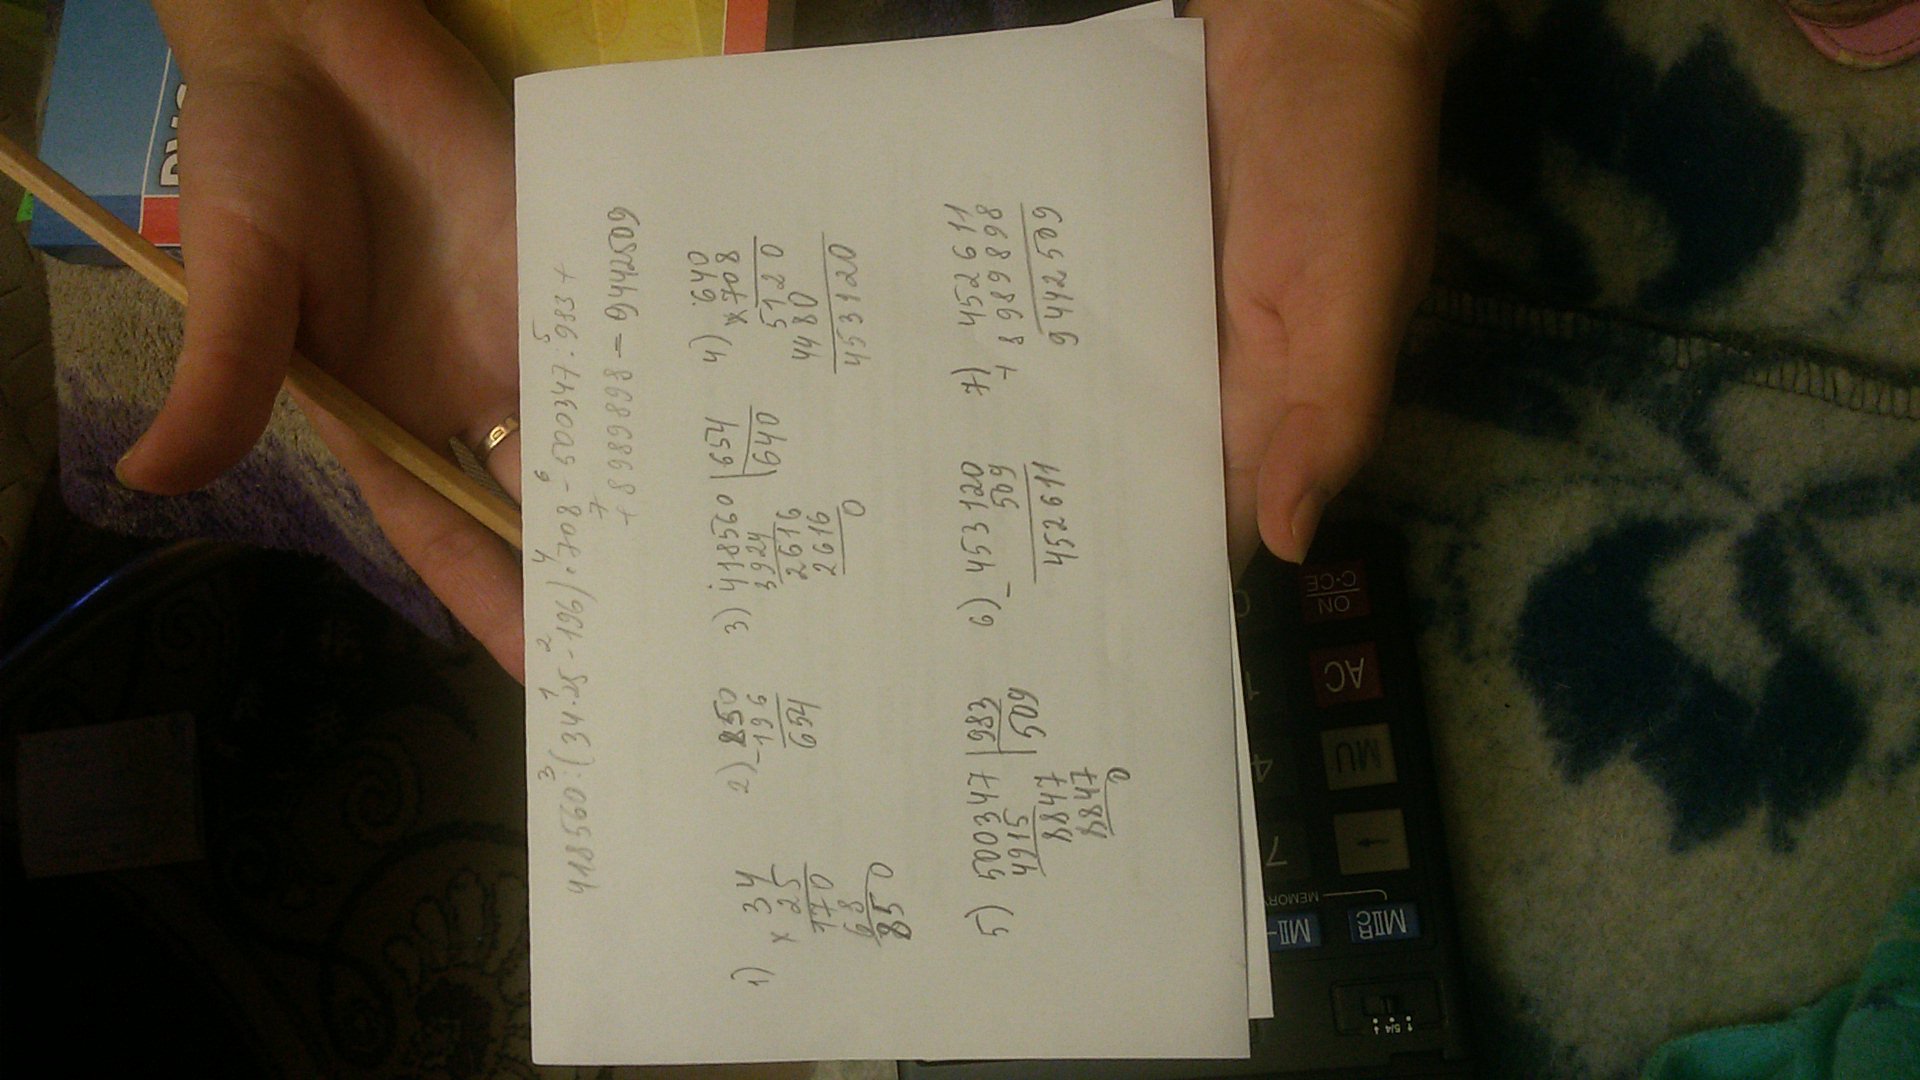 418560:(34·25-196)·708-500347:983+
3 1 2 4 6 5
+8989898=9442509
7
1) 34
×25
170
68
850
2) 850
-196
654
3) 418560 | 654
3924 640
2616
2616
0
4) 640
×708
5120
4480
453120
5) 500347 | 983
4915 509
8847
8847
0
6) 453120
- 509
452611
7) 452611
+ 8989898
9442509
ON
C·CE
AC
MU
MEMORY
MII-
1
4
7
5/4